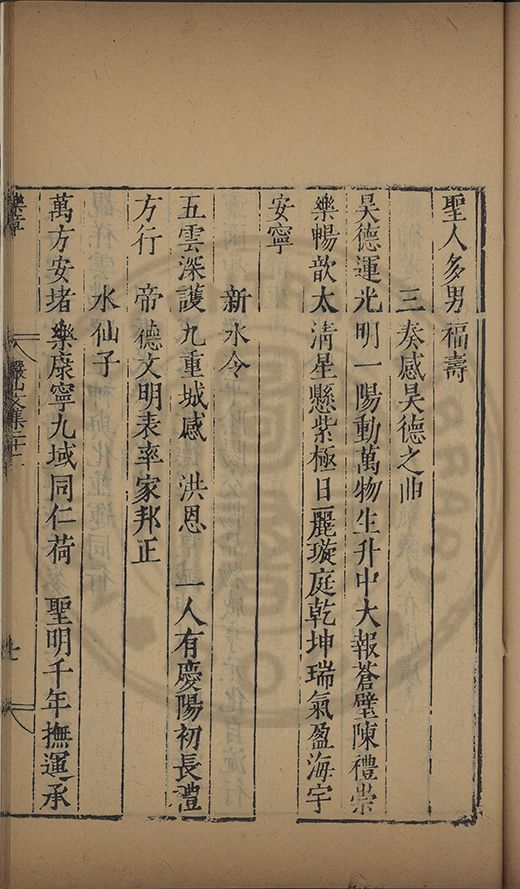 聖人多男福壽
三奏感昊德之曲
昊德運光明一陽動萬物生升中大報蒼璧陳禮崇
樂暢歆太清星懸紫極日麗璇庭乾坤瑞氣盈海宇
安寧
新水令
五雲深護九重城感 洪恩 一人有慶陽初長澧
方行 帝德文明表率家邦正
水仙子
萬方安堵樂康寧九域同仁荷 聖明千年撫運承
樂章
文集二十二
七